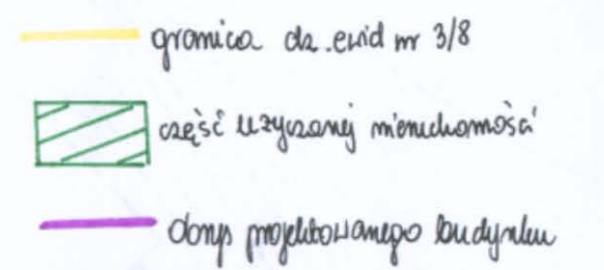 granica dz. ewid nr 3/8
część użyczonej nieruchomości
obrys projektowanego budynku